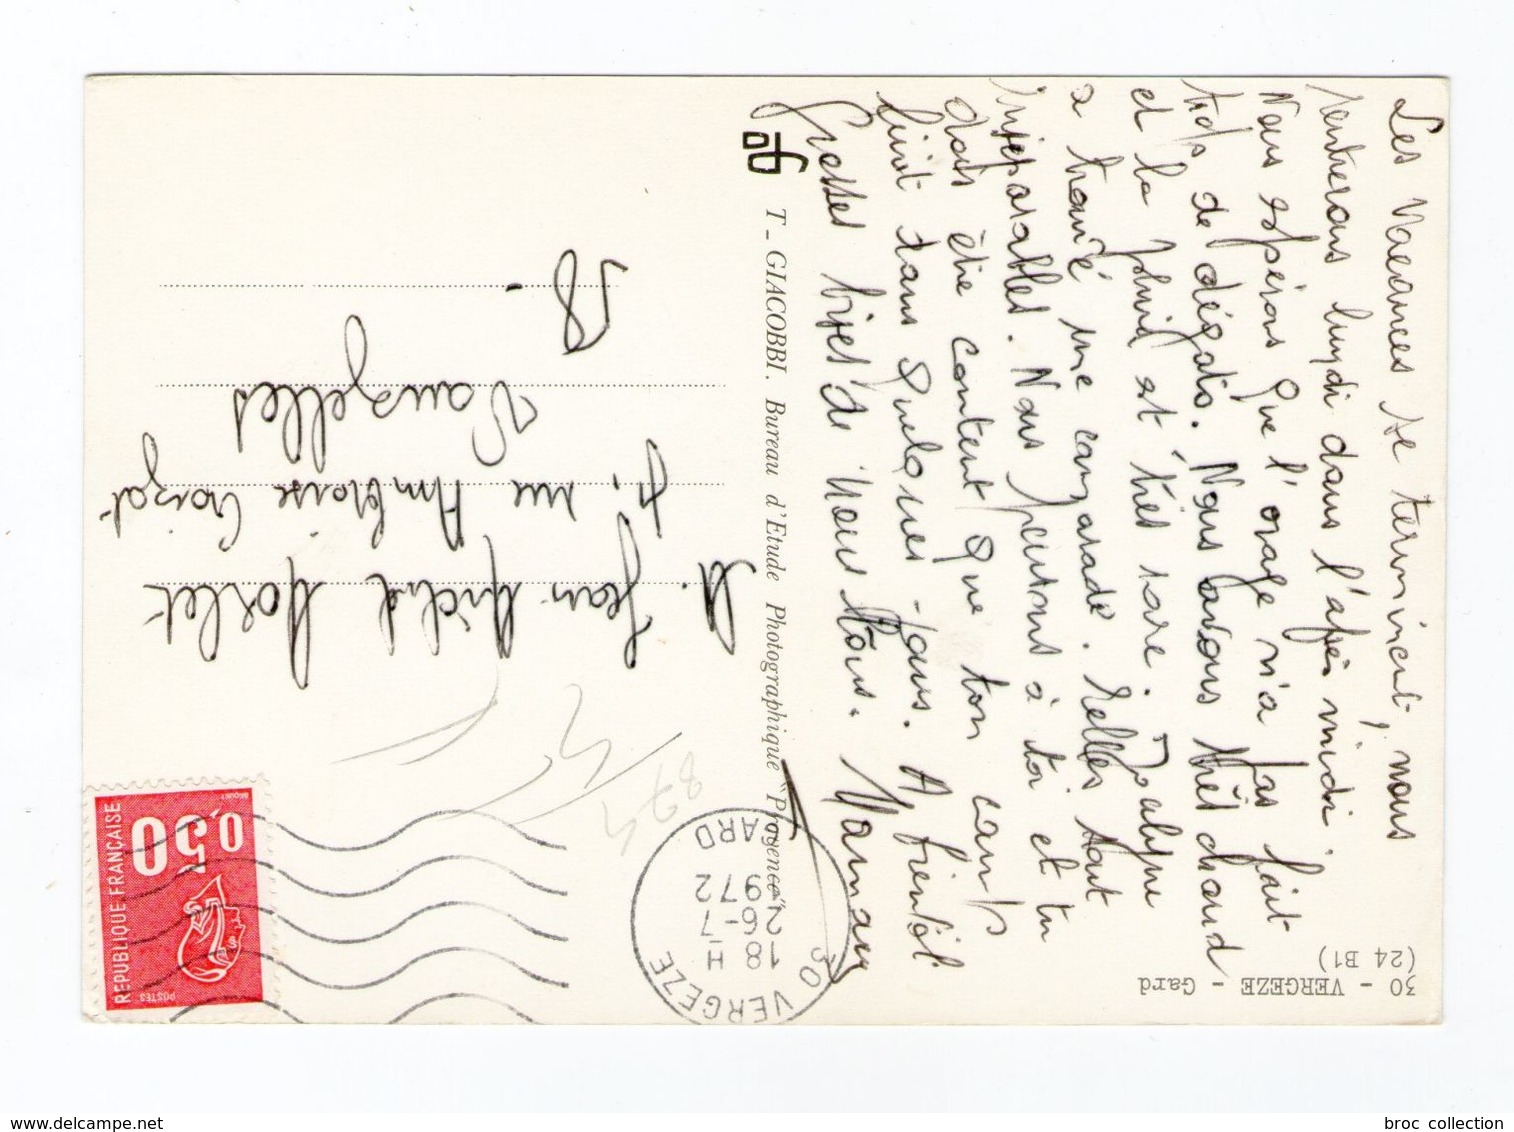 30 - VERGEZE - Gard
(24 B1)
Les Vacances se terminent, nous
rentrerons lundi dans l'après midi
Nous espérons que l'orage n'a pas fait
trop de dégats. Nous avons très chaud
et la pluie est très rare.
a trouvé une camarade. Elles sont
inséparables. Nous pensons à toi et tu
dois être content que ton camp
finit dans quelques jours. A bientôt
Grosses bises de nous tous. Maman
T - GIACOBBI. Bureau d'Etude Photographique "Provence"
M. Jean Michel Morlet
4, rue Ambroise Croizat
Vauzelles
58 -
30 VERGEZE
18 H
26-7
1972
GARD
874
REPUBLIQUE FRANÇAISE
0,50
POSTES
broc collection